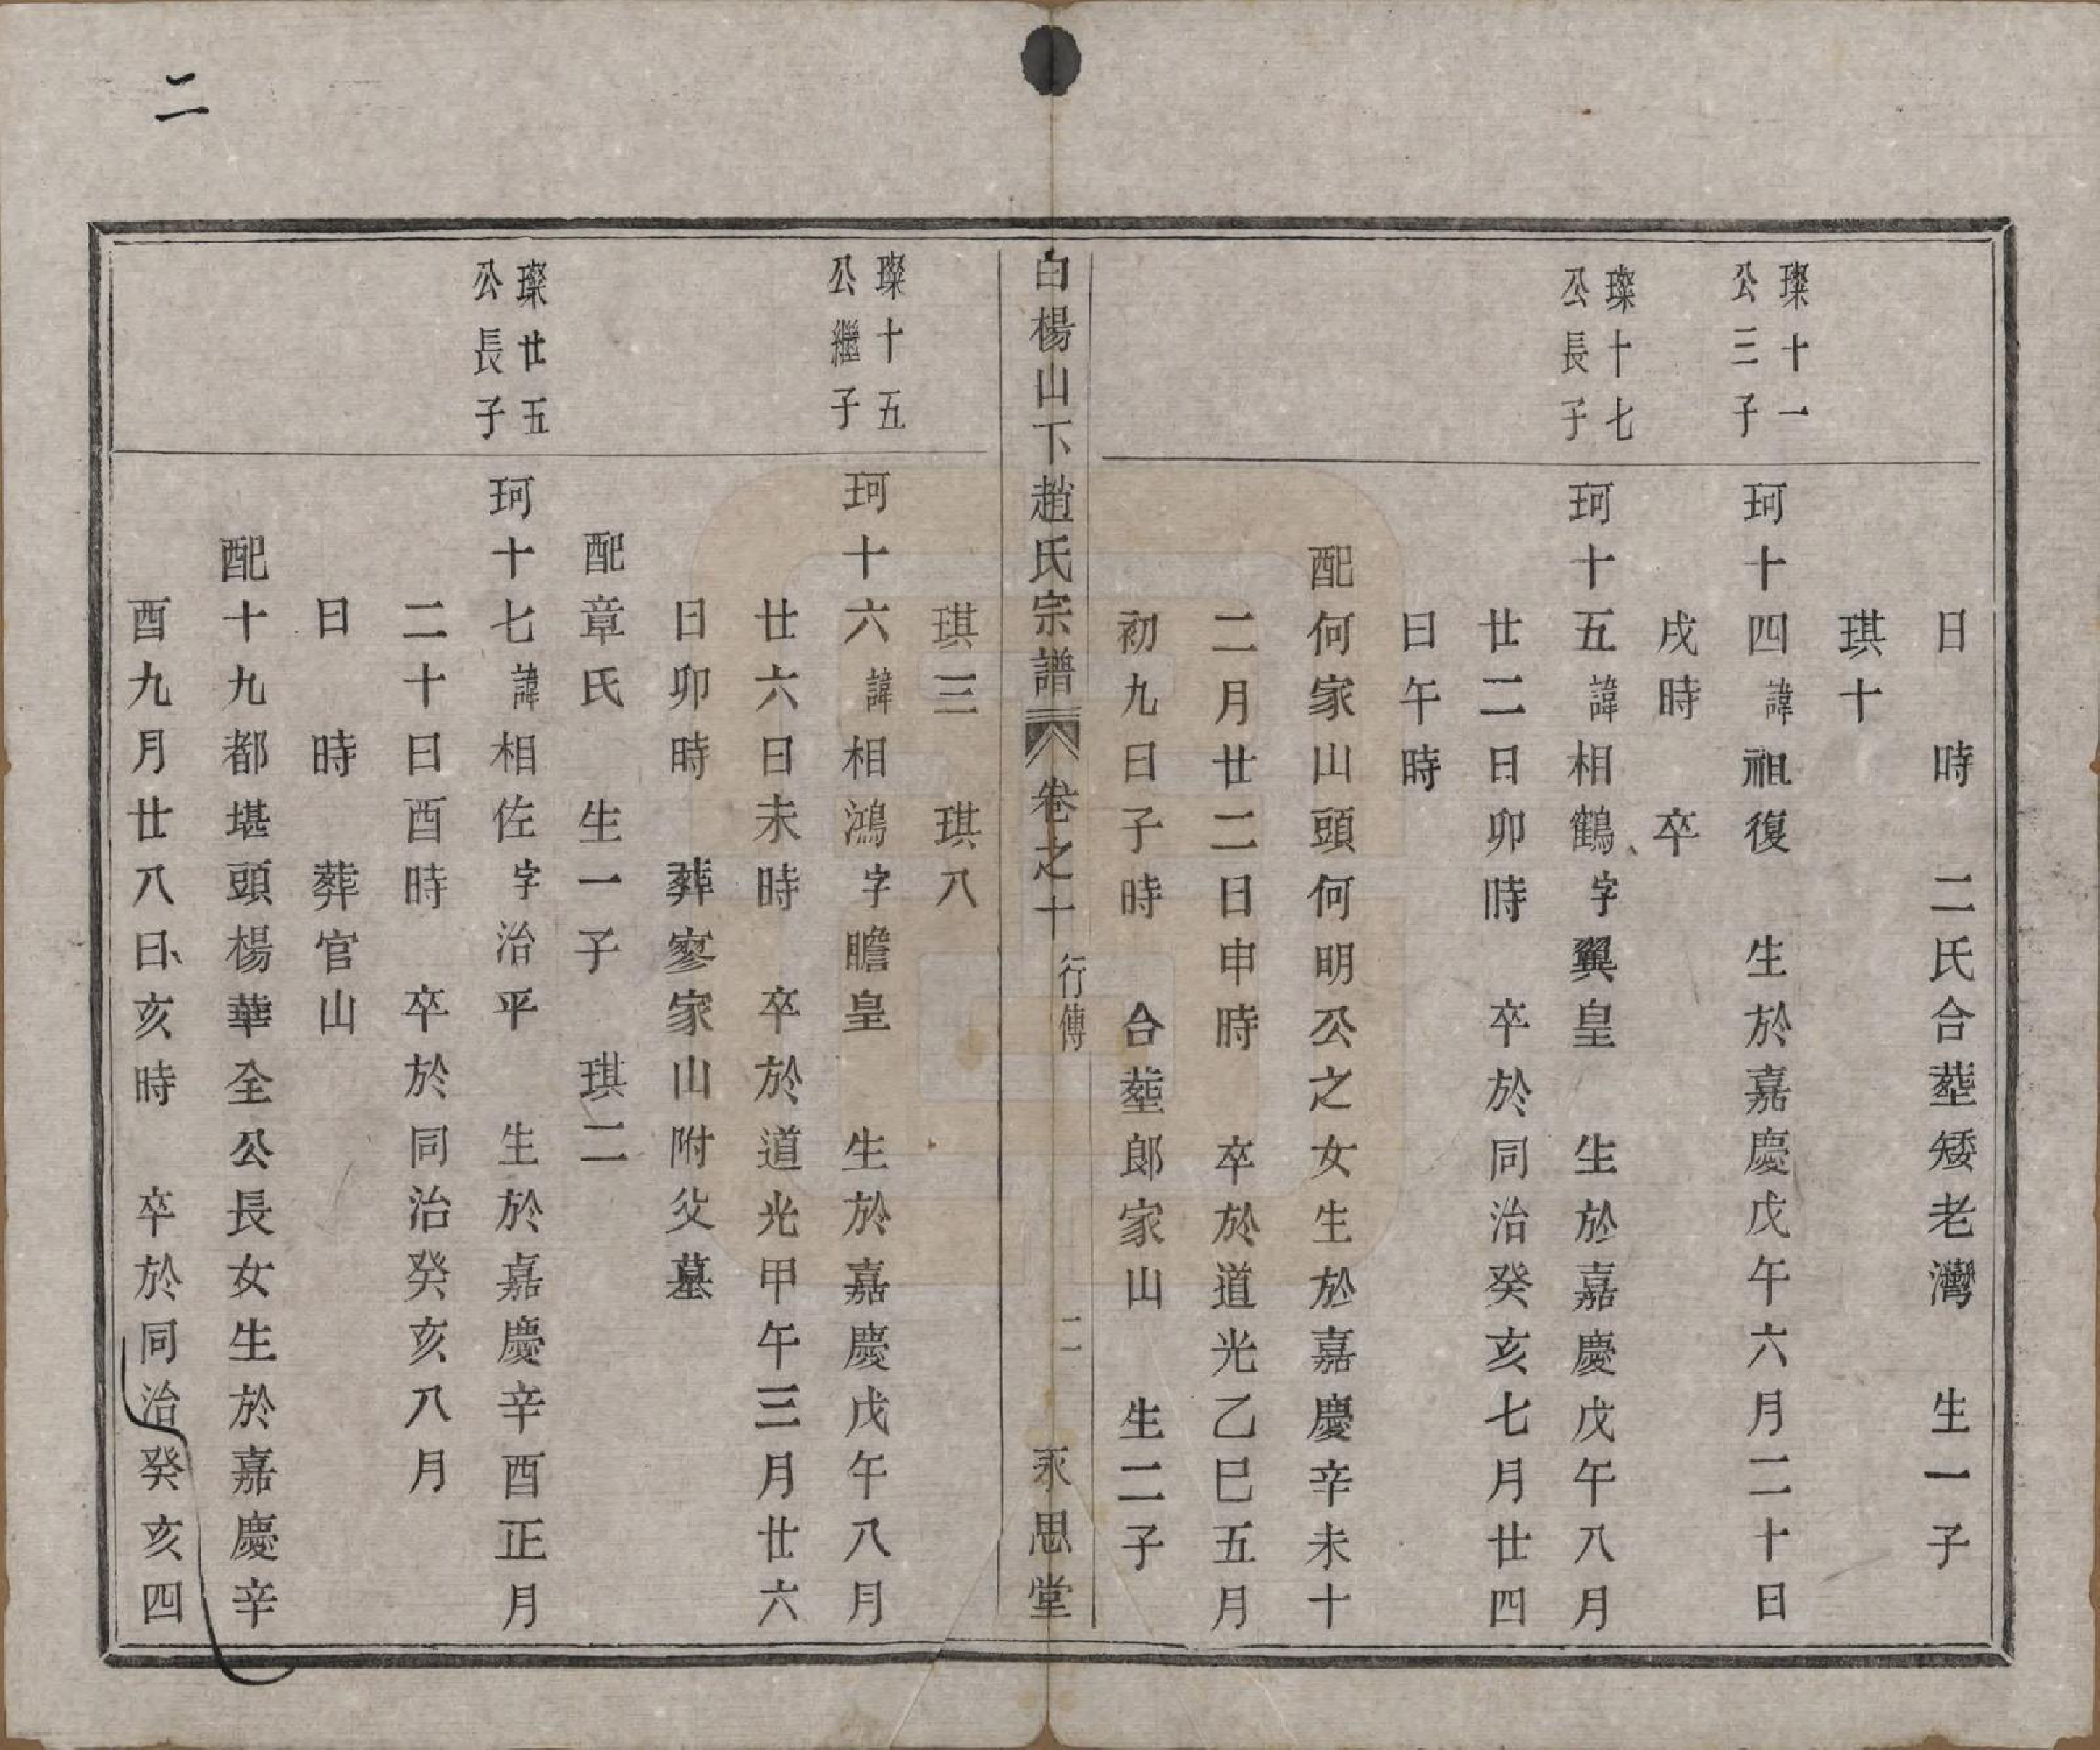 日　時　二氏合塟矮老灣　生一子
琪十
璨十一
公三子
珂十四諱祖復　生於嘉慶戊午六月二十日
戌時　卒
璨十七
公長子
珂十五諱相鶴字翼皇　生於嘉慶戊午八月
廿二日卯時　卒於同治癸亥七月廿四
日午時
配何家山頭何明公之女生於嘉慶辛未十
二月廿二日申時　卒於道光乙巳五月
初九日子時　合塟郎家山　生二子
白楊山下趙氏宗譜　卷之十　行傳　二　永思堂
琪三　琪八
璨十五
公繼子
珂十六諱相鴻字瞻皇　生於嘉慶戊午八月
廿六日未時　卒於道光甲午三月廿六
日卯時　葬寥家山附父墓
配章氏　生一子　琪二
璨廿五
公長子
珂十七諱相佐字治平　生於嘉慶辛酉正月
二十日酉時　卒於同治癸亥八月
日　時　葬官山
配十九都堪頭楊華全公長女生於嘉慶辛
酉九月廿八日亥時　卒於同治癸亥四
二